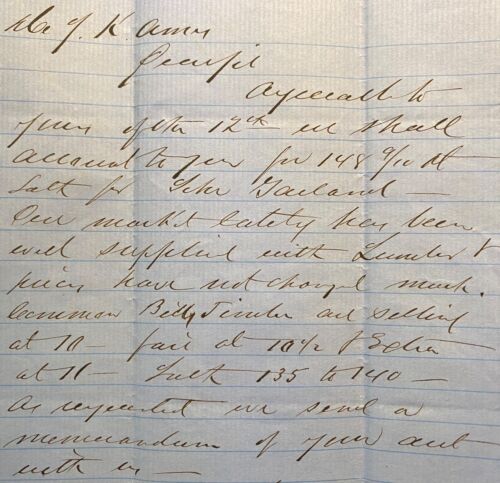 J. K. Ames
Agreeable to
yours of the 12th we shall
account to you for 148 9/10 M
Laths for Schr Garland —
Our market lately has been
well supplied with Lumber &
prices have not changed much.
Common Bldg Timber are selling
at 10 — fair at 10 1/2 & Extra
at 11 — Lath 135 to 140 —
As requested we send a
memorandum of your acct
with us —